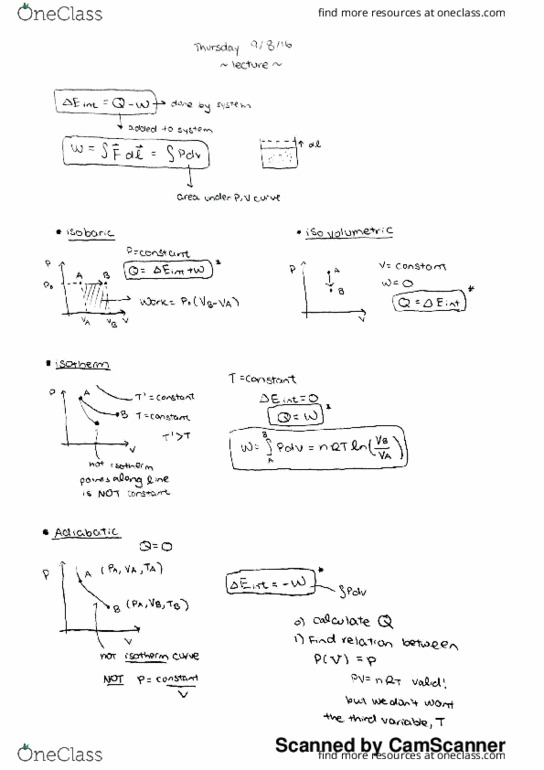 OneClass
find more resources at oneclass.com
Thursday 9/8/16
~ lecture ~
ΔE int = Q - W → done by system
added to system
W = ∫F⃗ dl⃗ = ∫Pdv
dl
area under P,V curve
• isobaric
P=constant
Q = ΔE int + W *
P
P₀
A
B
VA
VB
V
Work = P₀(VB-VA)
• isovolumetric
P
A
B
V
V= constant
W=0
Q = ΔE int *
• isotherm
P
A
B
V
T' = constant
T = constant
T' > T
not isotherm
points along line
is NOT constant
T = constant
ΔE int = 0
Q = W *
W = ∫ᴬᴮ PdV = nRT ln(VB/VA)
• Adiabatic
Q=0
P
A (PA, VA, TA)
B (PA, VB, TB)
V
not isotherm curve
NOT P = constant/V
ΔE int = -W *
∫Pdv
0) calculate Q
1) Find relation between
P(V) = P
PV = nRT valid!
but we don't want
the third variable, T
Scanned by CamScanner
OneClass
find more resources at oneclass.com